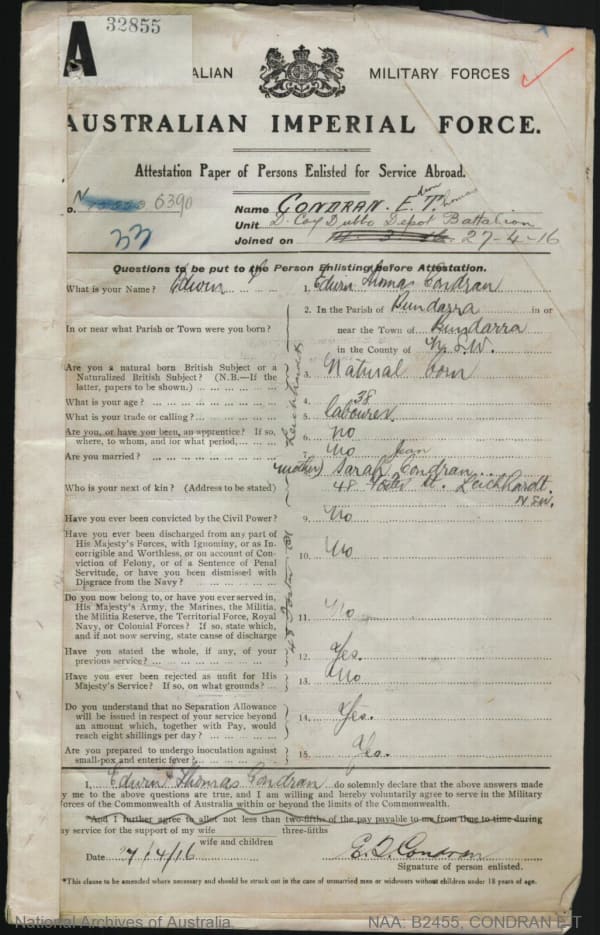 A
32855
ALIAN MILITARY FORCES
AUSTRALIAN IMPERIAL FORCE.
Attestation Paper of Persons Enlisted for Service Abroad.
No. 6390
33
Name CONDRAN. E. T.
Unit D. Coy Dubbo Depot Battalion
Joined on 27-4-16
Questions to be put to the Person Enlisting before Attestation.
What is your Name? Edwin 1. Edwin Thomas Condran
2. In the Parish of Bundarra in or
In or near what Parish or Town were you born? near the Town of Bundarra
in the County of N.S.W.
Are you a natural born British Subject or a
Naturalized British Subject? (N.B.—If the 3. Natural born
latter, papers to be shown.)
What is your age? 4. 38
What is your trade or calling? 5. labourer.
Are you, or have you been, an apprentice? If so, 6. no
where, to whom, and for what period,
Are you married? 7. No Jean
(mother) Sarah Condran
Who is your next of kin? (Address to be stated) 48 Foster St. Leichhardt.
N.S.W.
Have you ever been convicted by the Civil Power? 9. No
Have you ever been discharged from any part of
His Majesty's Forces, with Ignominy, or as In-
corrigible and Worthless, or on account of Con- 10. No
viction of Felony, or of a Sentence of Penal
Servitude, or have you been dismissed with
Disgrace from the Navy?
Do you now belong to, or have you ever served in,
His Majesty's Army, the Marines, the Militia,
the Militia Reserve, the Territorial Force, Royal 11. No
Navy, or Colonial Forces? If so, state which,
and if not now serving, state cause of discharge
Have you stated the whole, if any, of your 12. Yes.
previous service?
Have you ever been rejected as unfit for His 13. No
Majesty's Service? If so, on what grounds?
Do you understand that no Separation Allowance
will be issued in respect of your service beyond 14. Yes.
an amount which, together with Pay, would
reach eight shillings per day?
Are you prepared to undergo inoculation against 15. Yes.
small-pox and enteric fever?
48 Foster St Leichhardt
I, Edwin Thomas Condran do solemnly declare that the above answers made
y me to the above questions are true, and I am willing and hereby voluntarily agree to serve in the Military
forces of the Commonwealth of Australia within or beyond the limits of the Commonwealth.
*And I further agree to allot not less than two-fifths of the pay payable to me from time to time during
y service for the support of my wife three-fifths
wife and children
Date 27/4/16 E. T. Condran
Signature of person enlisted.
*This clause to be amended where necessary and should be struck out in the case of unmarried men or widowers without children under 18 years of age.
National Archives of Australia NAA: B2455, CONDRAN E T